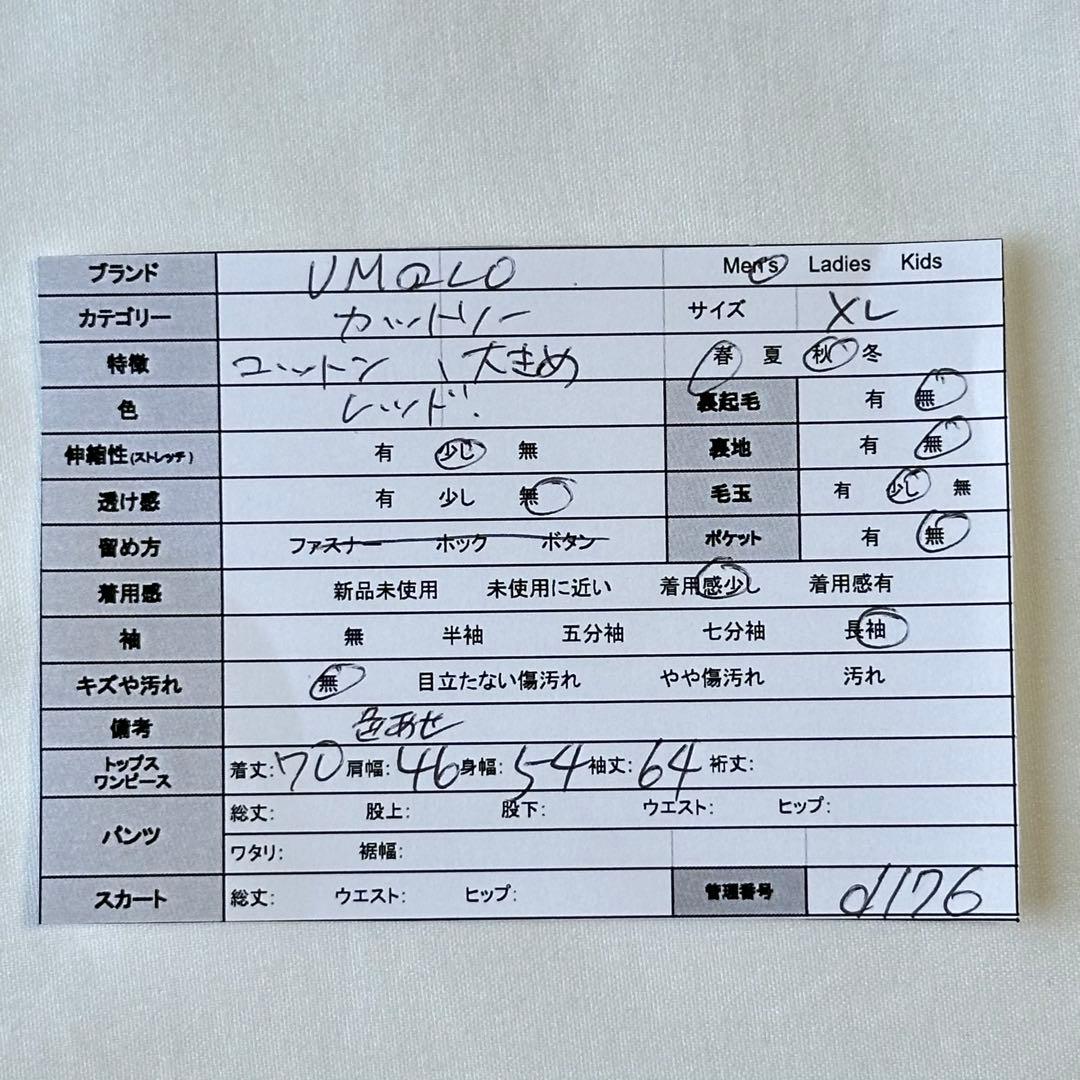 ブランド UMQLO Men's Ladies Kids
カテゴリー カットソー サイズ XL
特徴 コットン、大きめ 春 夏 秋 冬
色 レッド. 裏起毛 有 無
伸縮性(ストレッチ) 有 少し 無 裏地 有 無
透け感 有 少し 無 毛玉 有 少し 無
留め方 ファスナー ホック ボタン ポケット 有 無
着用感 新品未使用 未使用に近い 着用感少し 着用感有
袖 無 半袖 五分袖 七分袖 長袖
キズや汚れ 無 目立たない傷汚れ やや傷汚れ 汚れ
備考 色あせ
トップス
ワンピース 着丈:70 肩幅:46 身幅:54 袖丈:64 裄丈:
パンツ 総丈: 股上: 股下: ウエスト: ヒップ:
ワタリ: 裾幅:
スカート 総丈: ウエスト: ヒップ: 管理番号 d176